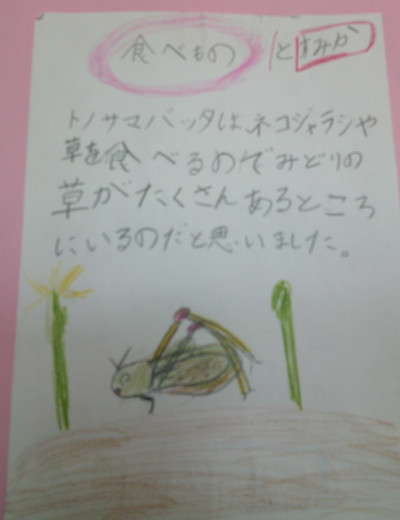 食べもの とすみか
トノサマバッタは、ネコジャラシや
草を食べるのでみどりの
草がたくさんあるところ
にいるのだと思いました。